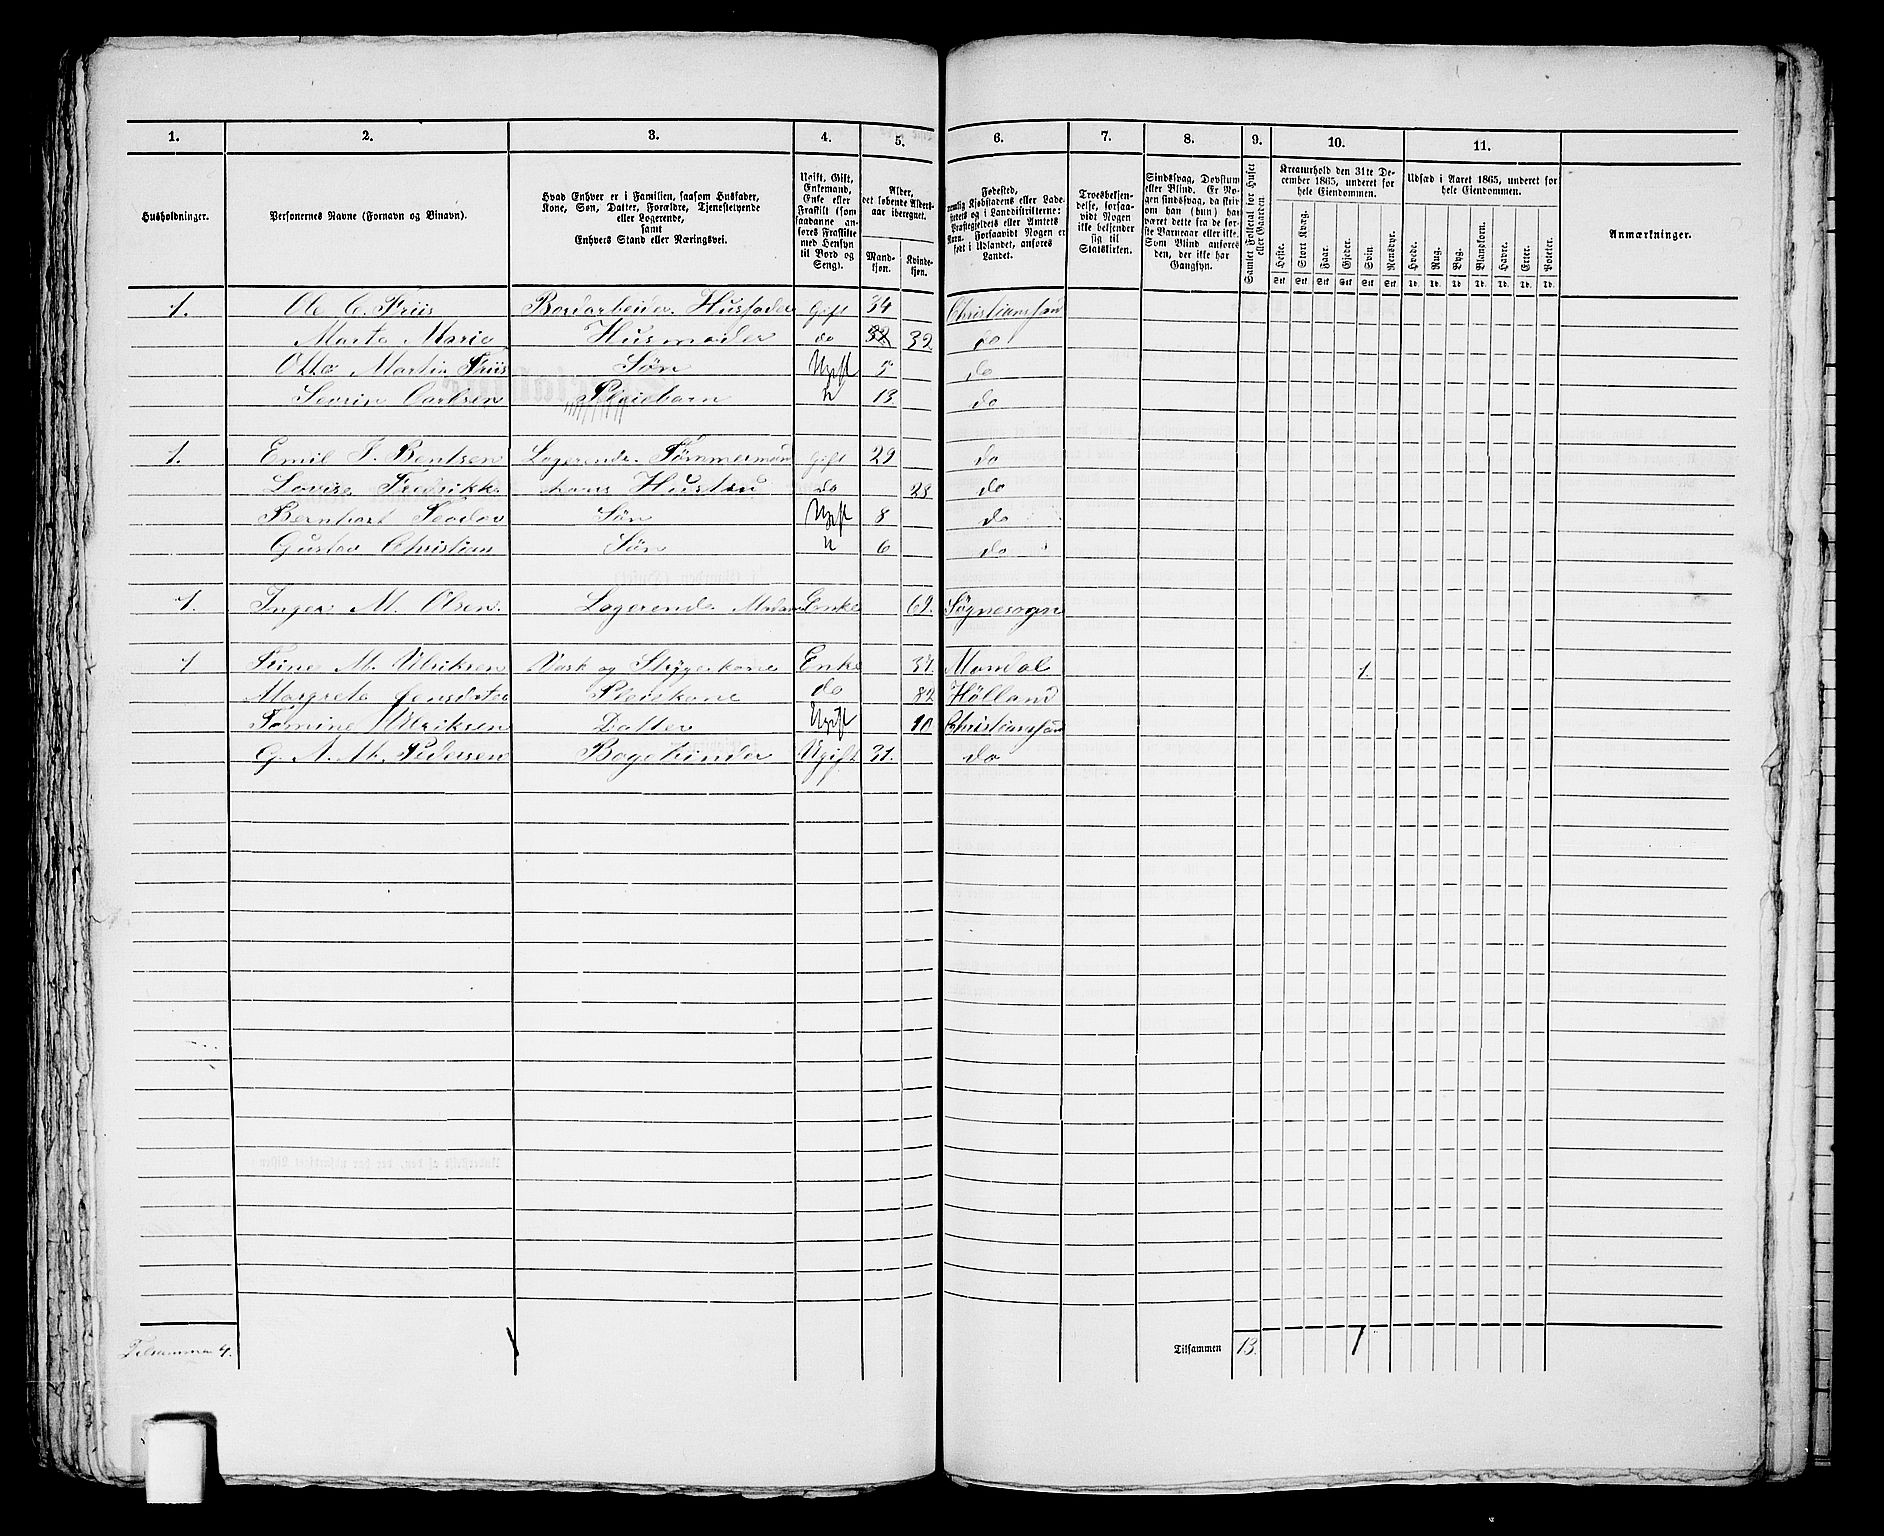 1. 2. 3. 4. 5. 6. 7. 8. 9. 10. 11.
Husholdninger.
Personernes Navne (Fornavn og Binavn).
Hvad Enhver er i Familien, saasom Husfader, Kone, Søn, Datter, Forældre, Tjenestetyende eller Logerende, samt Enhvers Stand eller Næringsvei.
Ugift, Gift, Enkemand, Enke eller Fraskilt (som saadanne anføres Fraskilte med Hensyn til Bord og Seng).
Alder, det løbende Alders-aar iberegnet.
Mandkjøn. Kvindekjøn.
Fødested, nemlig Kjøbstadens eller Ladestedets og i Landdistrikterne: Præstegjeldets eller Amtets Navn. Forsaavidt Nogen er født i Udlandet, anføres Landet.
Troesbekjendelse, forsaavidt Nogen ikke bekjender sig til Statskirken.
Sindssvag, Døvstum eller Blind. Er Nogen sindssvag, da skrives om han (hun) har været dette fra de første Barneaar eller ikke. Som Blind anføres den, der ikke har Gangsyn.
Samlet Folketal for Huset eller Gaarden
Kreaturhold den 31te December 1865, underet for hele Eiendommen.
Heste. Stort Kvæg. Faar. Gjeder. Svin. Rensdyr.
Stk Stk Stk Stk Stk Stk
Udsæd i Aaret 1865, underet for hele Eiendommen.
Hvede. Rug. Byg. Blandkorn. Havre. Erter. Poteter.
Td. Td. Td. Td. Td. Td. Td.
Anmærkninger.
1. Ole C. Friis Husfader Gift 34 Christianssand
Marte Marie Husmoder do 32 32 do
Otto Martin Friis Søn Ugift 5 do
Sevrin Carlsen Pleiebarn " 13. do
1. Emil F. Bentsen Logerende. Tømmermand Gift 29 do
Lovise Fredrikke hans Hustru do 28 do
Bernhart Teodor Søn Ugift 8 do
Gustav Christian Søn " 6 do
1. Inger M. Olsen. Logerende Madam Enke 62. Søgnesogn
1 Trine M. Ulriksen Vask og Strygekone Enke 37. Mandal 1.
Margrete Jensdater Pleiekone do 82 Holland
Tomine Ulriksen Datter Ugift 10 Christianssand
G. A. M. Pedersen Bogbinder Ugift 31. do
Tilsammen 4. Tilsammen 13. 1